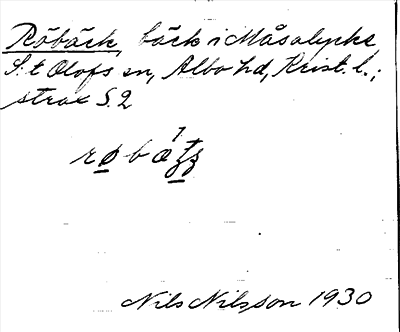 Röbäck, bäck i Måsalycke,
S:t Olofs sn, Albo hd, Krist. l.;
strax S. 2
Nils Nilsson 1930